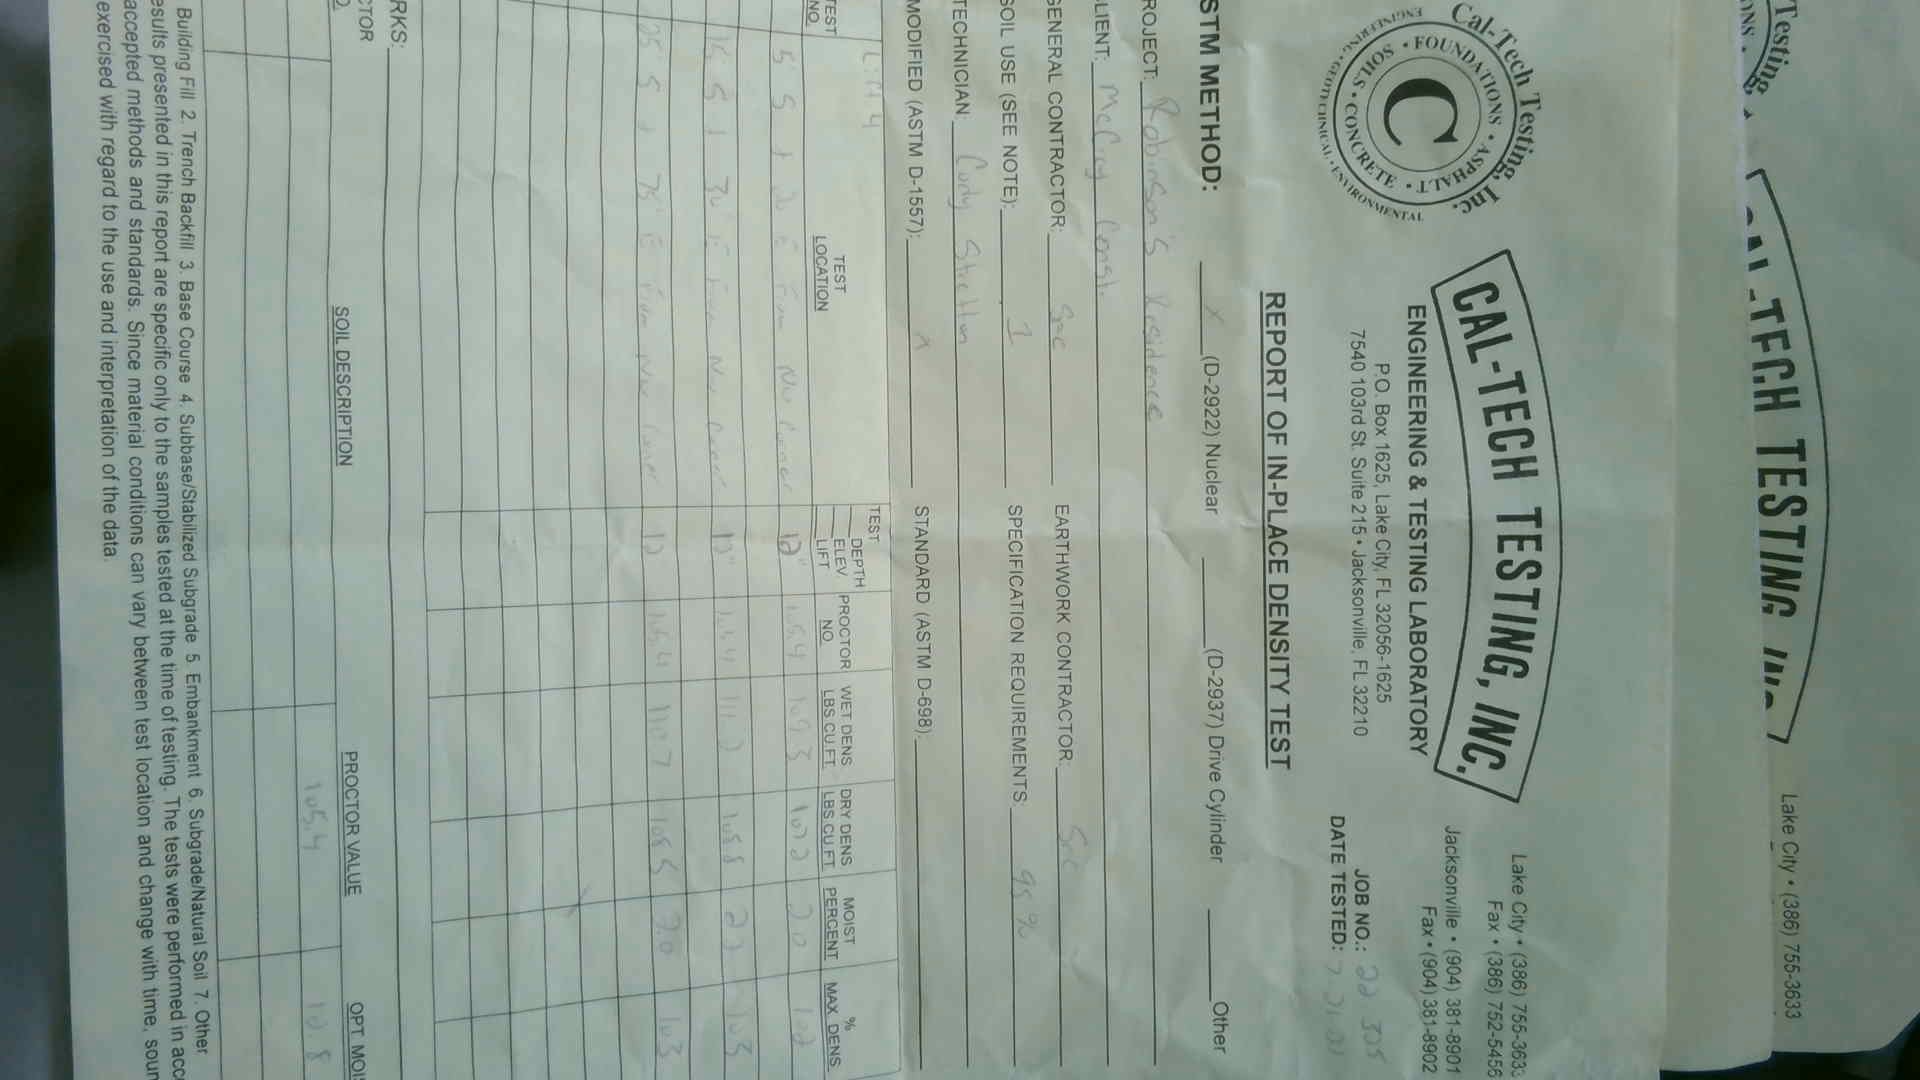 Testing
CAL-TECH TESTING, INC.
Lake City • (386) 755-3633
Cal-Tech Testing, Inc.
SOILS • FOUNDATIONS • ASPHALT • CONCRETE
ENGINEERING • GEOTECHNICAL • ENVIRONMENTAL
C
CAL-TECH TESTING, INC.
ENGINEERING & TESTING LABORATORY
P.O. Box 1625, Lake City, FL 32056-1625
7540 103rd St. Suite 215 • Jacksonville, FL 32210
Lake City • (386) 755-3633
Fax • (386) 752-5456
Jacksonville • (904) 381-8901
Fax • (904) 381-8902
JOB NO.: 22 305
DATE TESTED:
REPORT OF IN-PLACE DENSITY TEST
STM METHOD: X (D-2922) Nuclear (D-2937) Drive Cylinder Other
ROJECT: Robinson's Residence
LIENT: McCray Const.
GENERAL CONTRACTOR: Sac EARTHWORK CONTRACTOR: Sac
SOIL USE (SEE NOTE): 1 SPECIFICATION REQUIREMENTS: 95 %
TECHNICIAN Cody
MODIFIED (ASTM D-1557): X STANDARD (ASTM D-698):
TEST NO. TEST LOCATION TEST DEPTH ELEV LIFT PROCTOR NO. WET DENS LBS.CU.FT. DRY DENS LBS.CU.FT. MOIST PERCENT % MAX DENS
5' S + 20 E from NW Corner 12" 105.4 109.3 107.2 2.0 102
15 S + 30' E from NW Corner 12" 105.4 111.2 108.8 2.2 103
25' S + 75' E from NW Corner 12 105.4 110.7 108.5 2.0 103
RKS:
CTOR SOIL DESCRIPTION PROCTOR VALUE OPT MOI
105.4 12.8
Building Fill 2. Trench Backfill 3. Base Course 4. Subbase/Stabilized Subgrade 5. Embankment 6. Subgrade/Natural Soil 7. Other
esults presented in this report are specific only to the samples tested at the time of testing. The tests were performed in acc
accepted methods and standards. Since material conditions can vary between test location and change with time, soun
exercised with regard to the use and interpretation of the data.